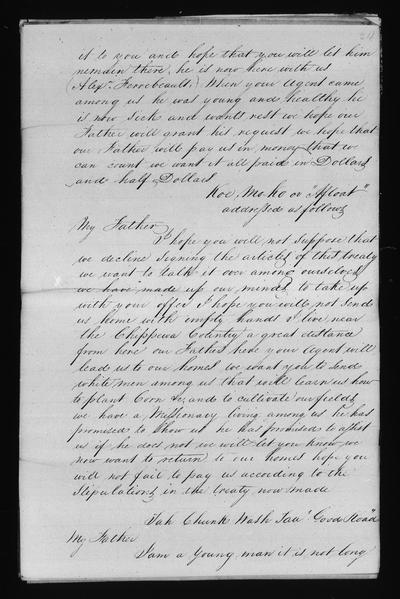 24
it to you and hope that you will let him
remain there, he is now here with us
(Alexr Ferrebeault) When your agent came
among us he was young and healthy he
is now sick and wants rest we hope our
Father will grant his request we hope that
our Father will pay us in money that we
can count we want it all paid in Dollars
and half Dollars
Koe Mo Ko or "Afloat"
addressed as follows
My Father
I hope you will not suppose that
we decline signing the articles of this treaty
we want to talk it over among ourselves
we have made up our minds to take up
with your offer I hope you will not send
us home with empty hands I live near
the Chippewa Country a great distance
from here our Father here your agent will
lead us to our homes we want you to send
white men among us that will learn us how
to plant Corn &c, and to cultivate our fields
we have a Missionary living among us he has
promised to show us he has promised to assist
us if he does not we will let you know we
now want to return to our homes hope you
will not fail to pay us according to the
Stipulations in the treaty now made
Tah Chunk Wash Taa "Good Road"
My Father
I am a young man it is not long